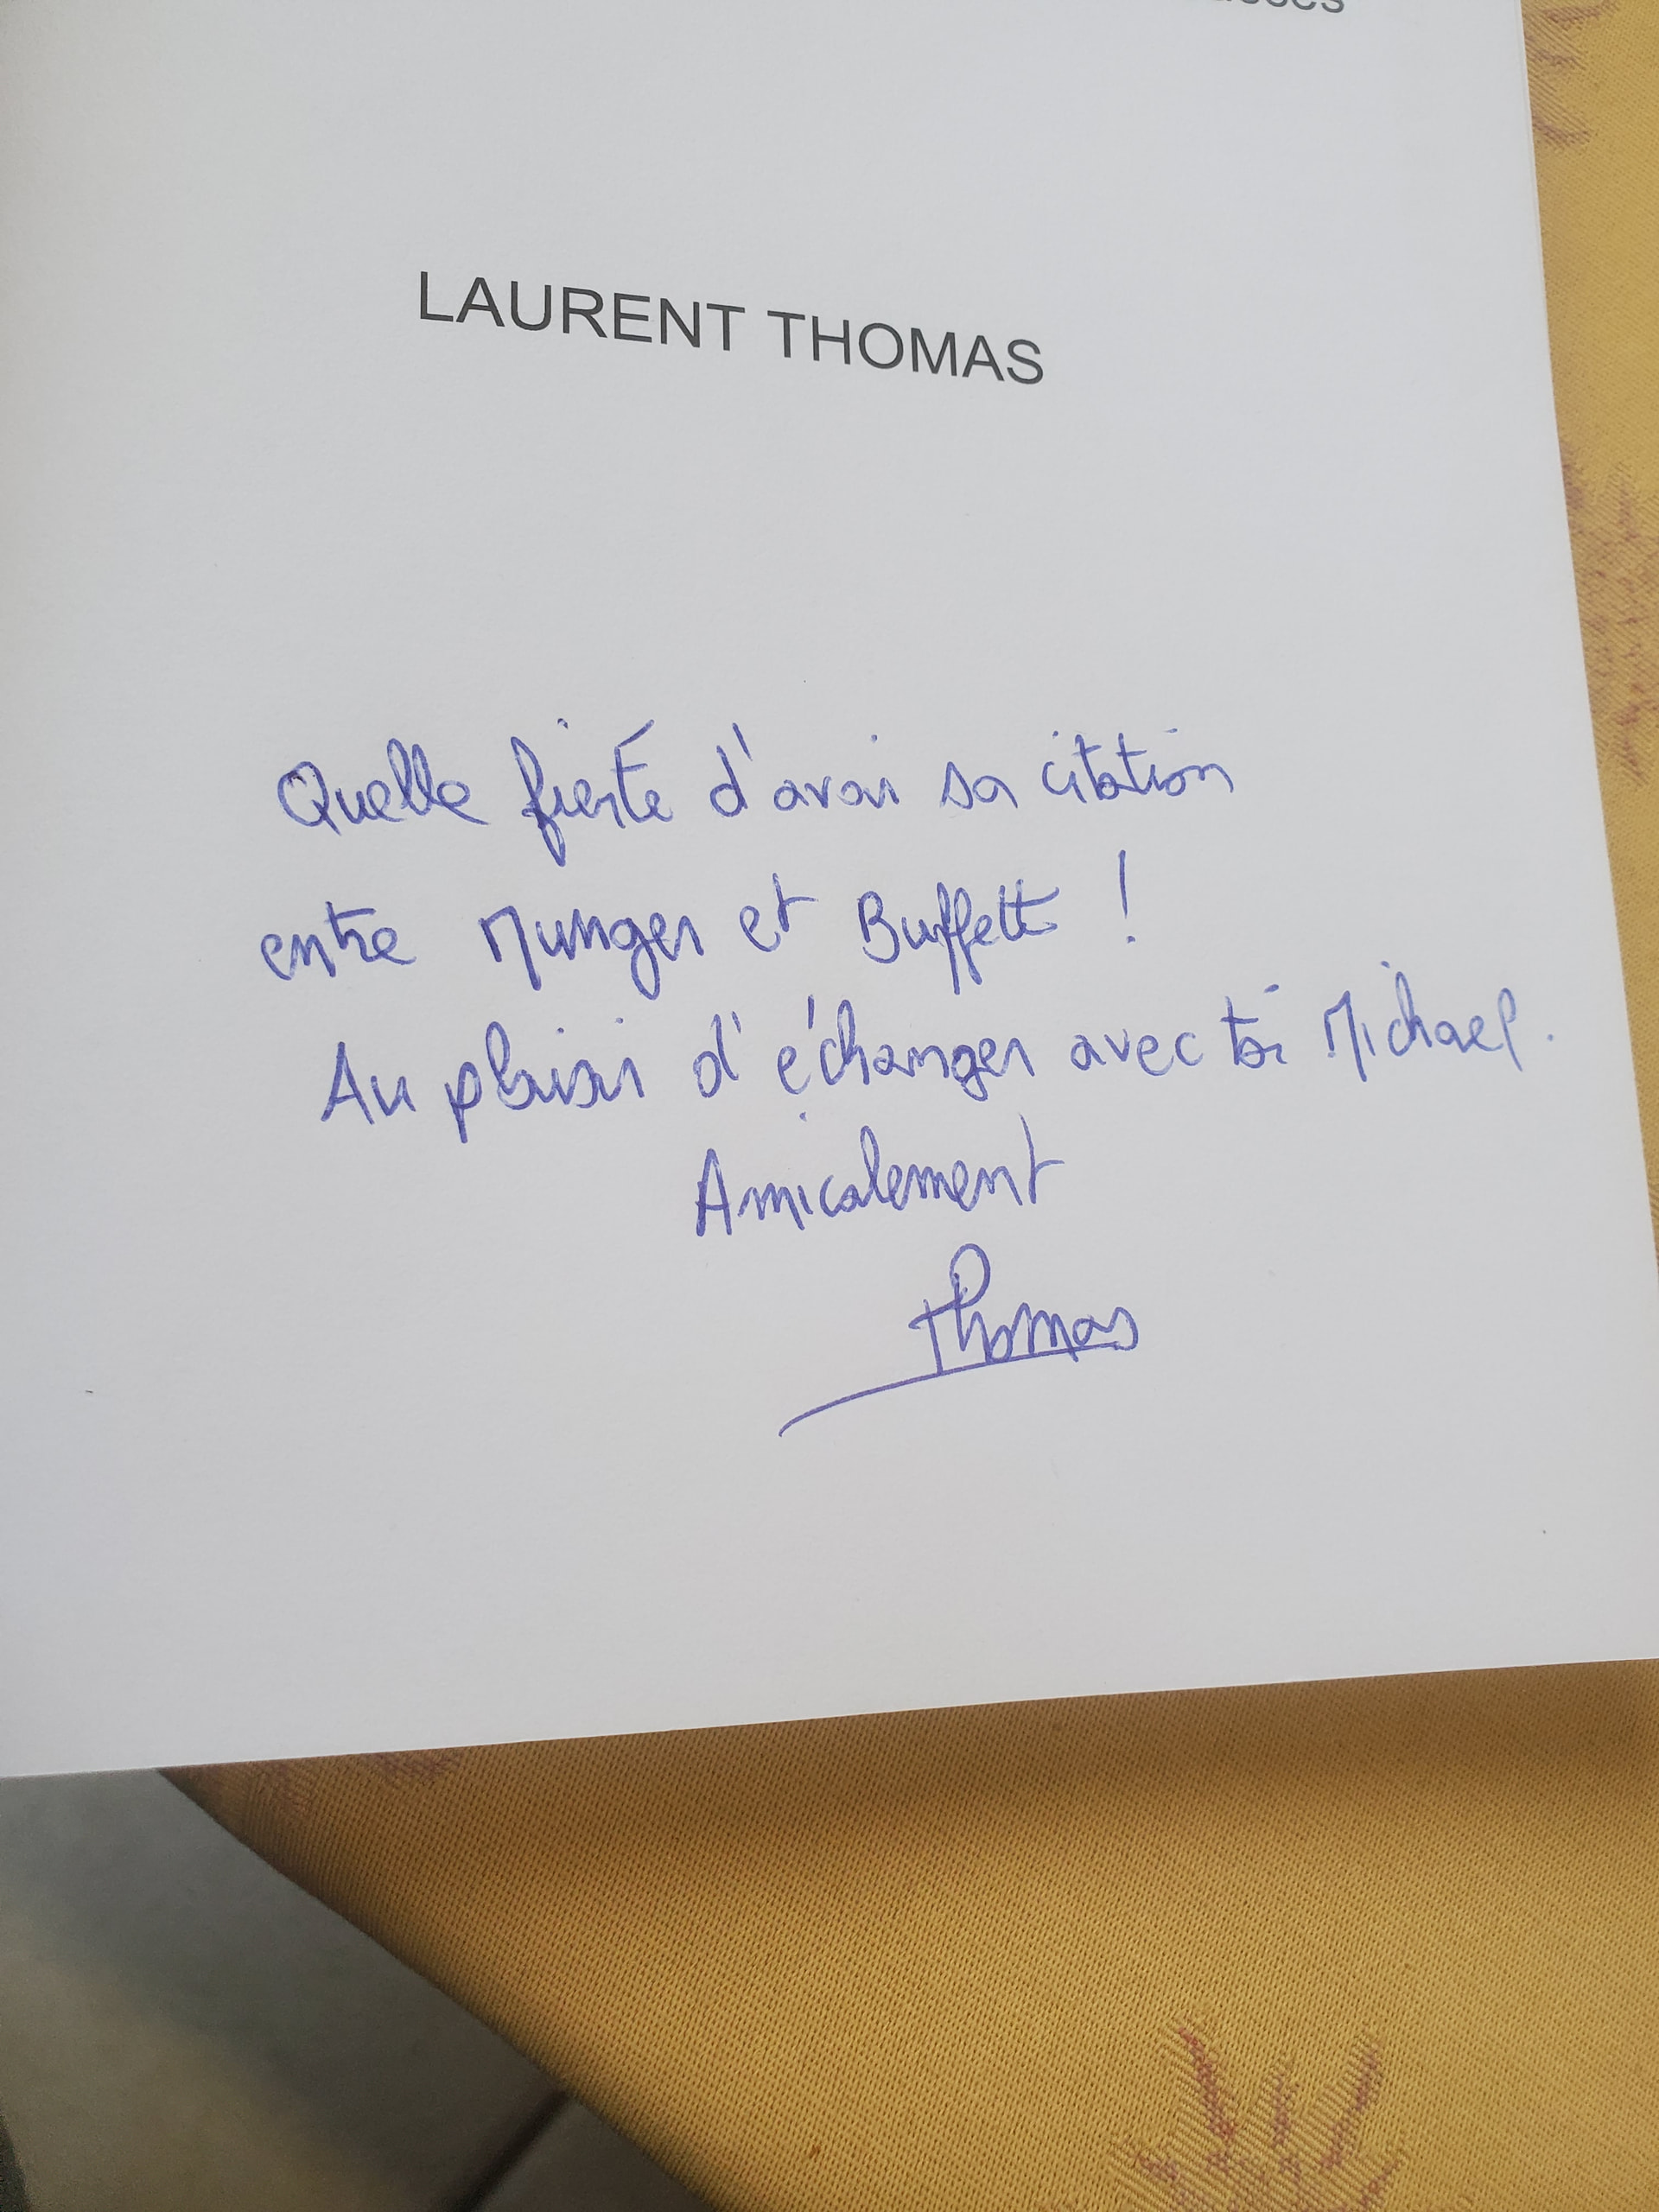 LAURENT THOMAS
Quelle fierté d'avoir sa citation
entre Munger et Buffett !
Au plaisir d'échanger avec toi Michael.
Amicalement
Thomas